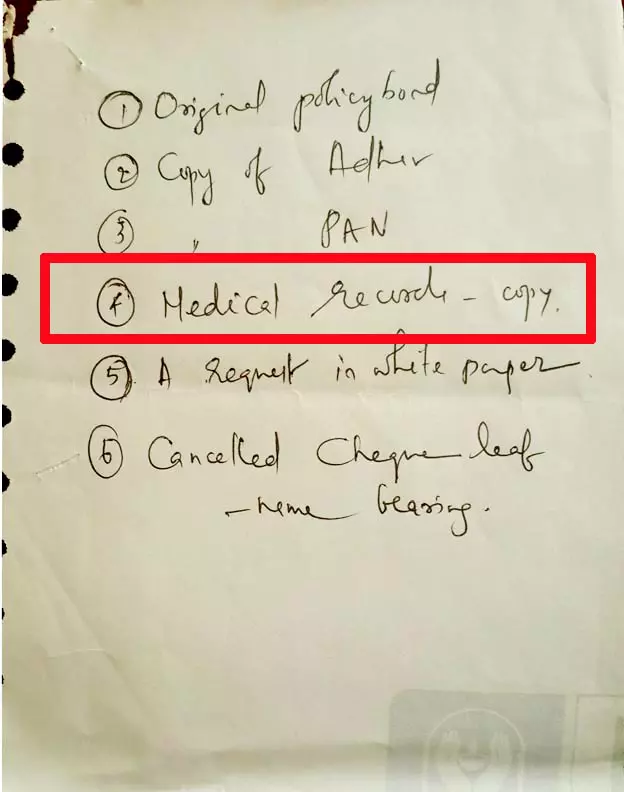 ① Original policy bond
② Copy of Adher
③ " PAN
④ Medical records - copy.
⑤ A request in white paper.
⑥ Cancelled Cheque leaf
- name bearing.